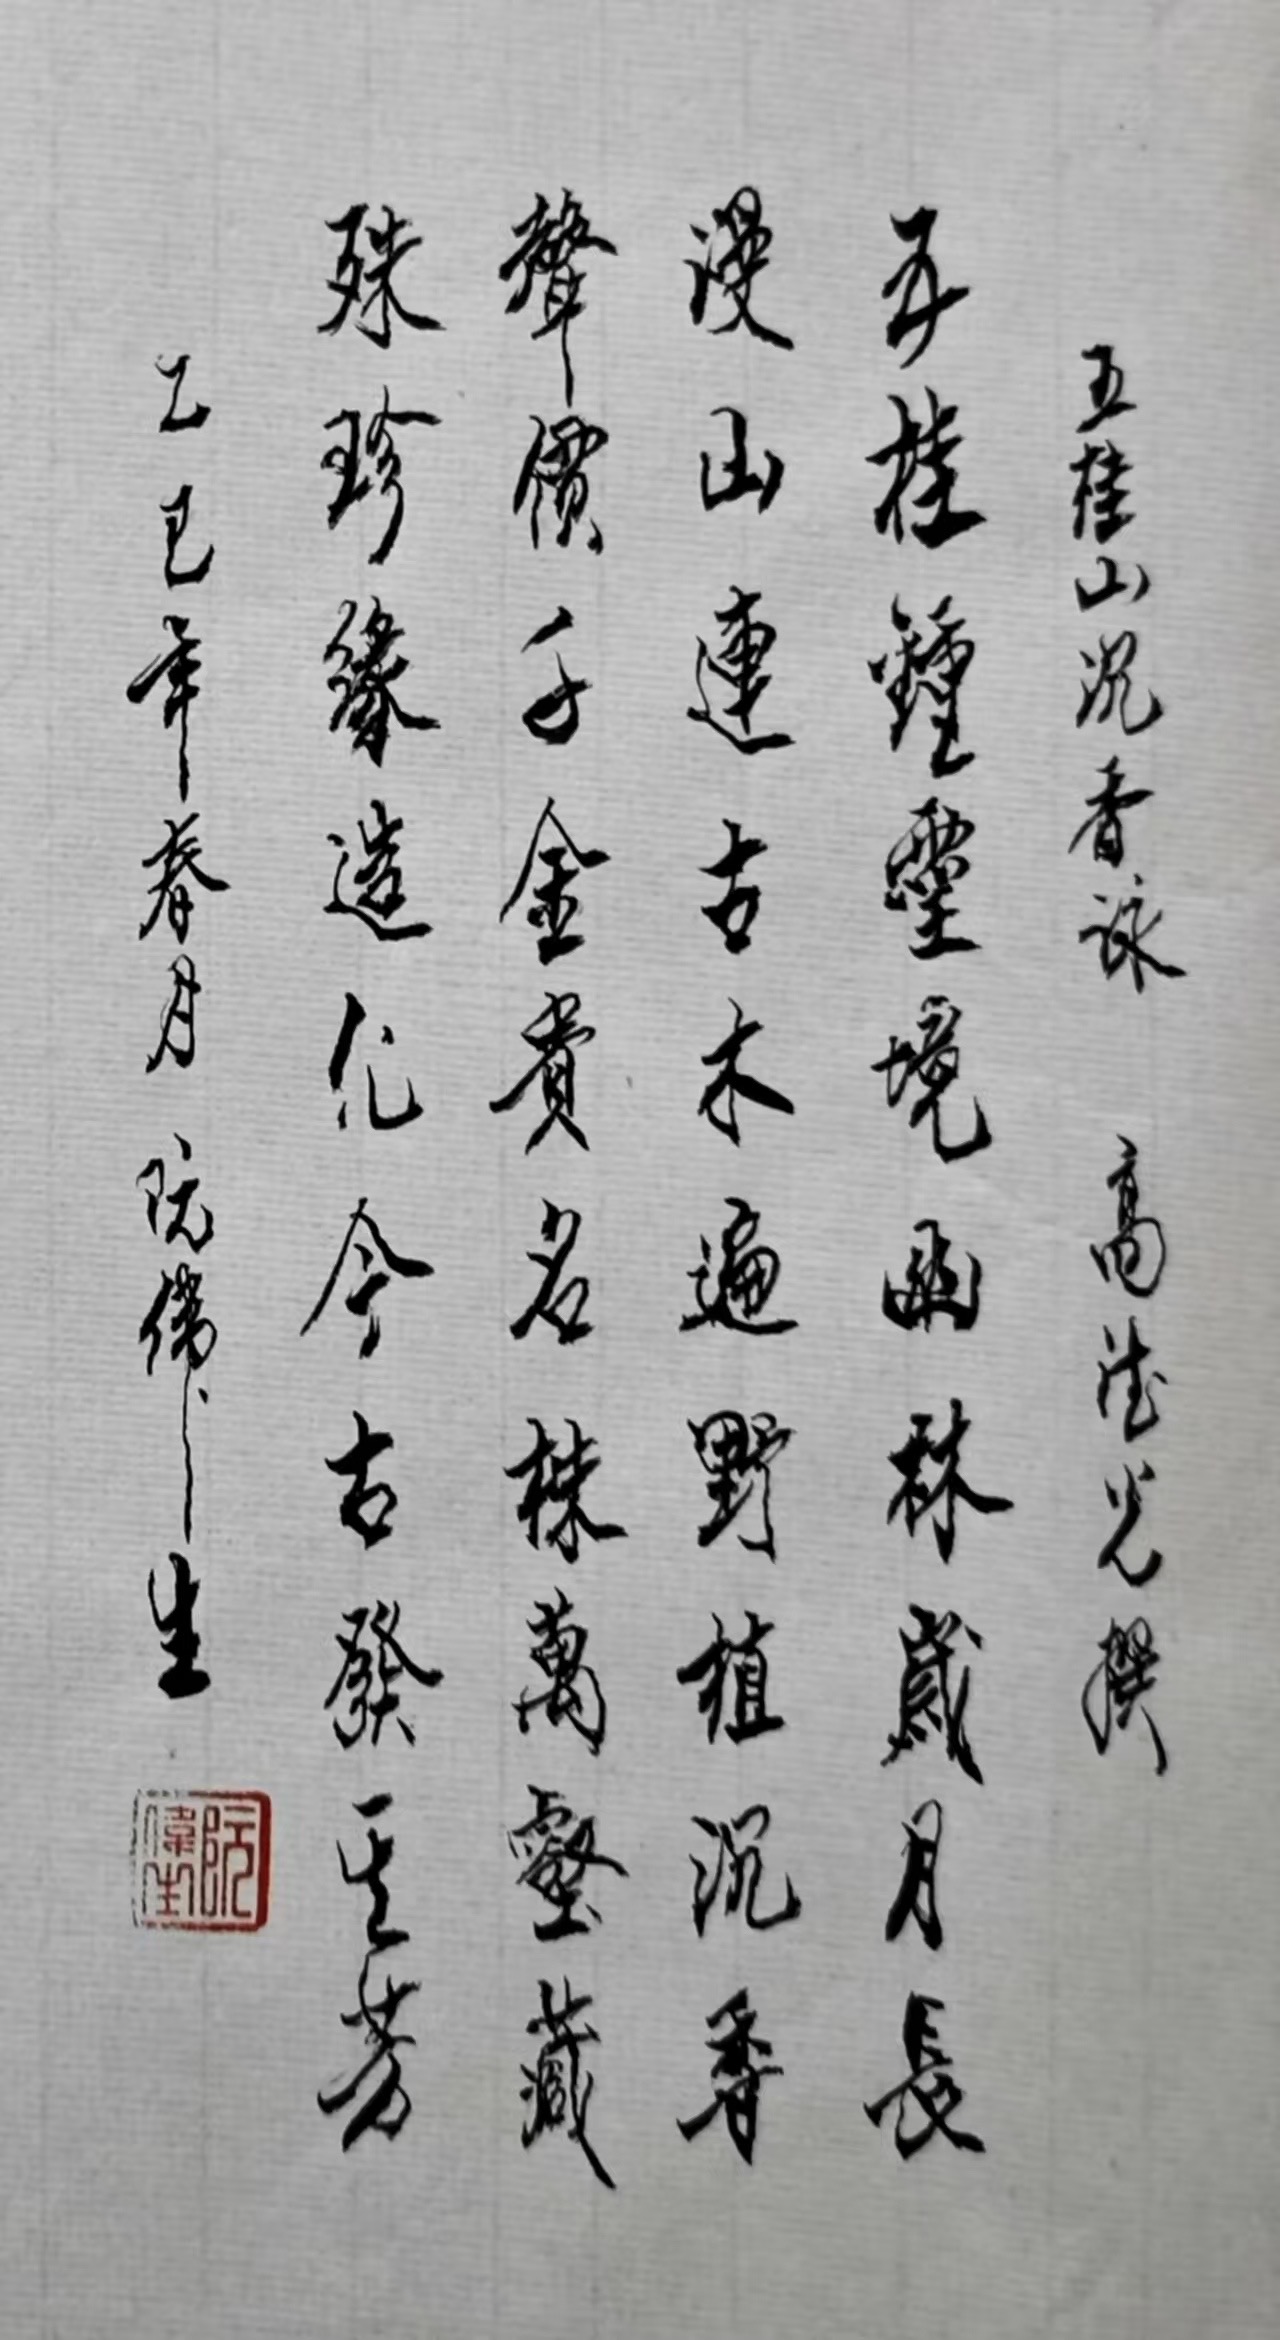 五桂山沉香詠 高德光撰
五桂鍾靈境幽林歲月長
漫山連古木遍野植沉香
聲價千金貴名株萬壑藏
殊珍緣造化今古發其芳
乙巳年春月 阮偉生
阮偉生